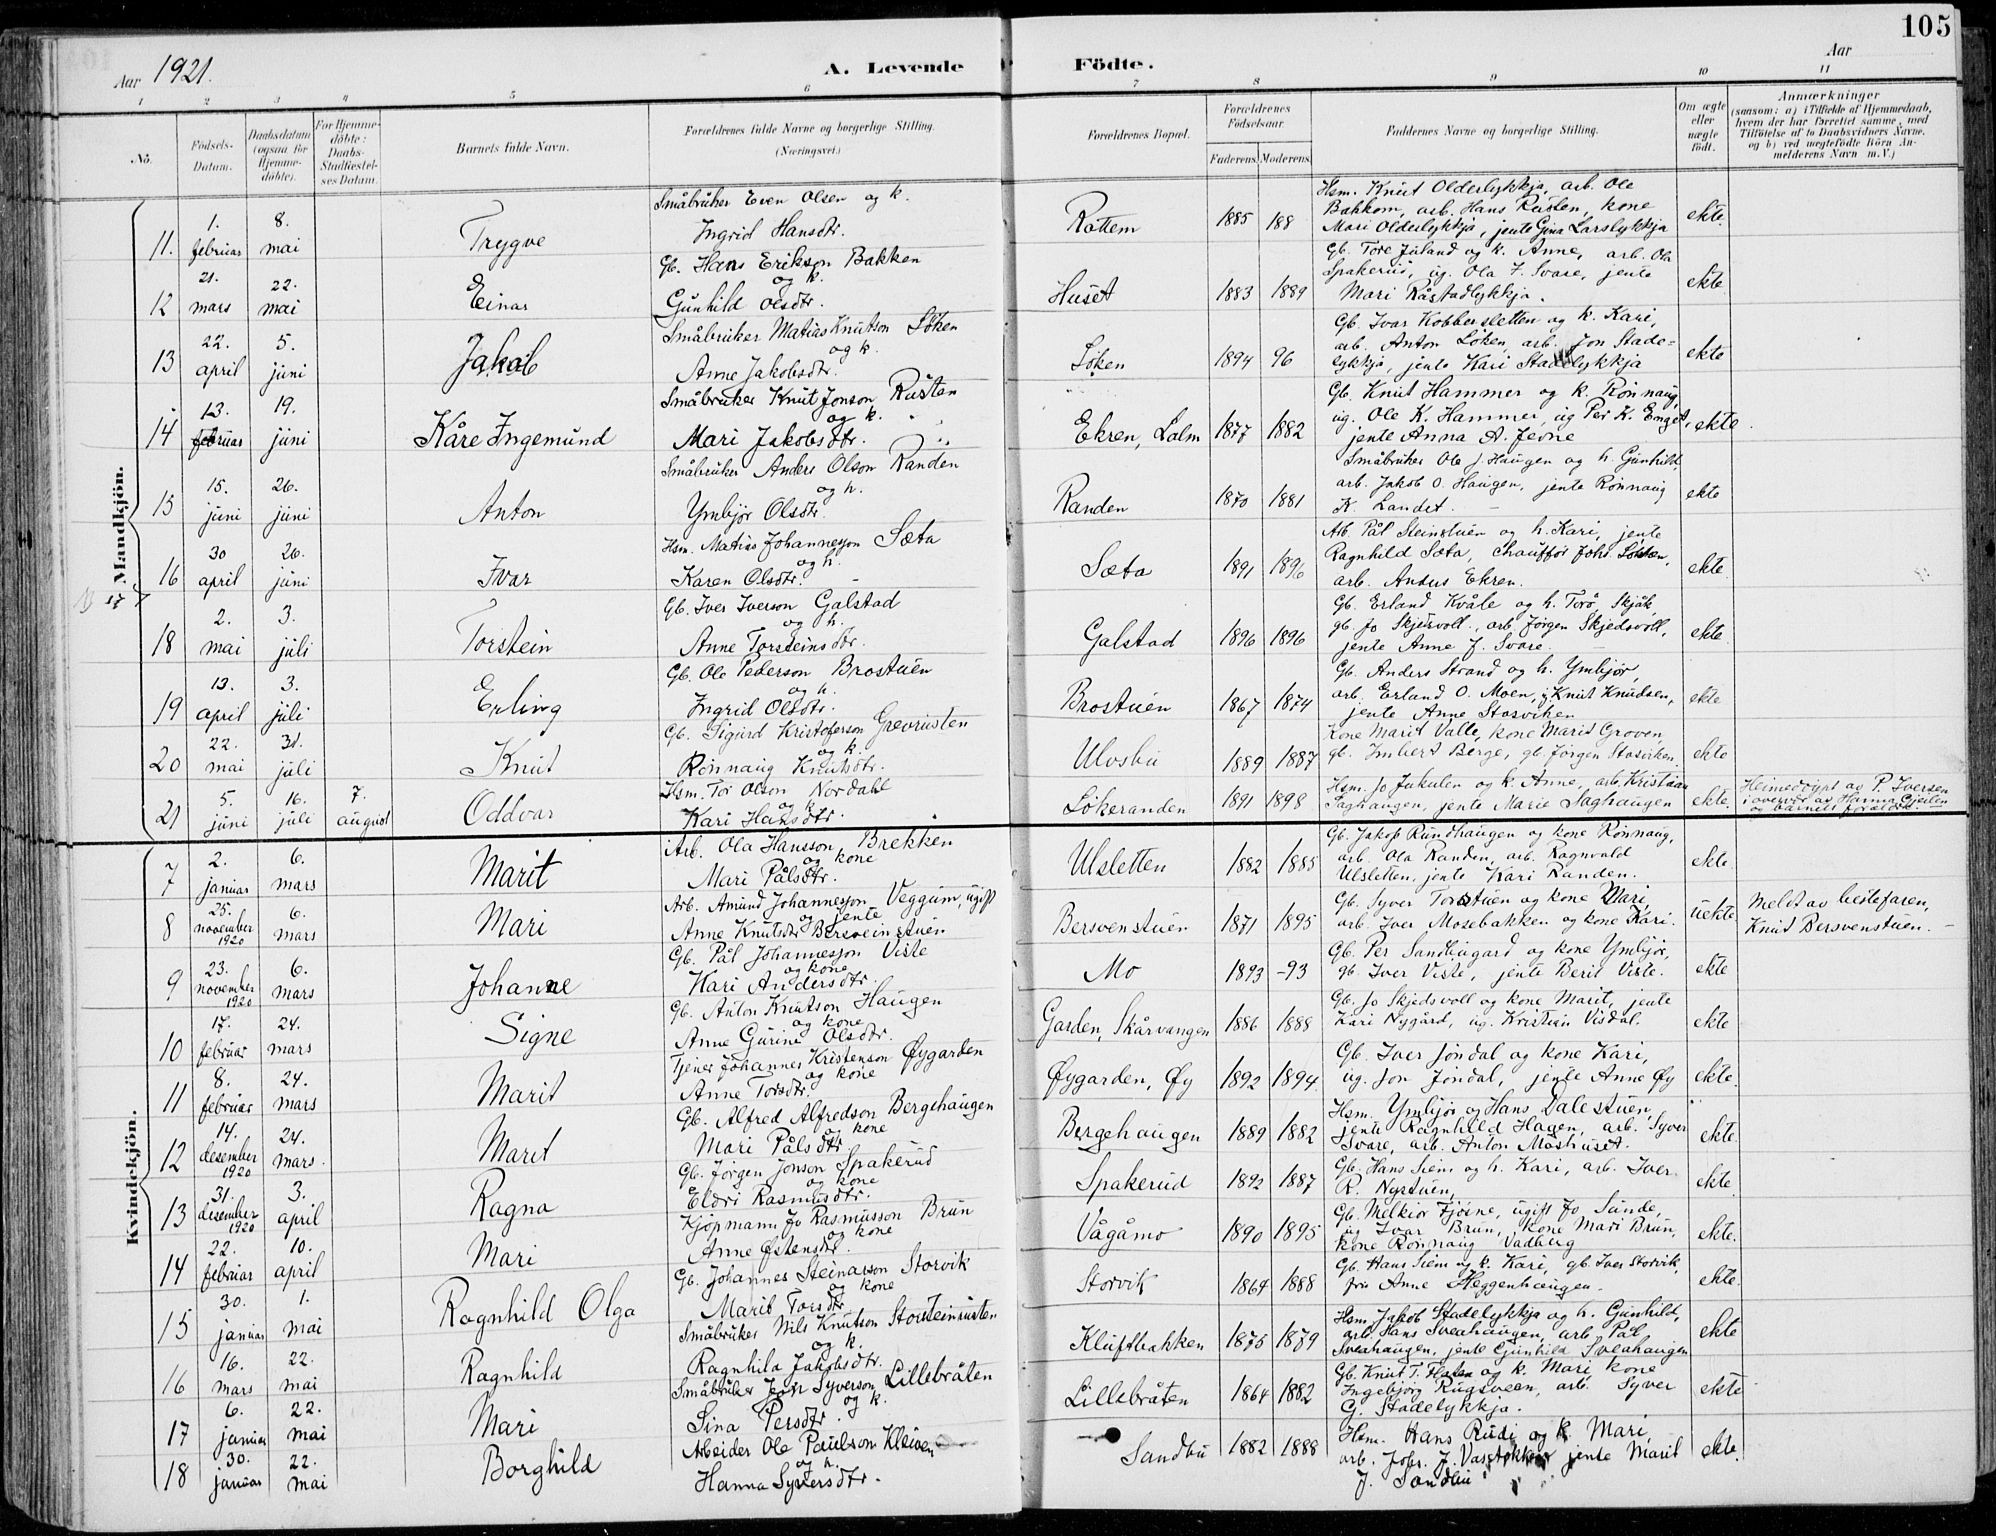 105
Aar 1921.
A. Levende Födte.
Aar
1 2 3 4 5 6 7 8 9 10 11
No.
Födsels-Datum.
Daabsdatum (ogsaa for Hjemme-döbte).
For Hjemme-döbte: Daabs-Stadfæstel-ses Datum.
Barnets fulde Navn.
Forældrenes fulde Navne og borgerlige Stilling. (Næringsvei.)
Forældrenes Bopæl.
Forældrenes Födselsaar.
Faderens. Moderens.
Faddernes Navne og borgerlige Stilling.
Om ægte eller uægte födt.
Anmærkninger
(saasom: a) i Tilfælde af Hjemmedaab, hvem der har forrettet samme, med Tilföielse af to Daabsvidners Navne, og b) ved uægtefödte Börn An-melderens Navn m. V.)
Mandkjön.
11. 1. februar 8. mai Trygve Småbruker Even Olsen og k. Ingrid Hansdtr. Rottem 1885 188 Hsm. Knut Olderlykkja, arb. Ole Bakkom, arb. Hans Rusten, kone Mari Olderlykkja, jente Gina Larslykkja ekte.
12 21. mars 22. mai Einar Gb. Hans Erikson Bakken og k. Gunhild Olsdtr. Huset 1883 1889 Gb. Tore Juland og k. Anne, arb. Ola Spakerud, ug. Ola J. Svare, jente Mari Råstadlykkja. ekte
13 22. april 5. juni Jakob Småbruker Matias Knutson Löken og k. Anne Jakobsdtr. Löken 1894 96 Gb. Ivar Kobbersletten og k. Kari, arb. Anton Löken, arb. Jon Stade-lykkja, jente Kari Stadelykkja ekte
14 13. februar 19. juni Kåre Ingemund Småbruker Knut Jonson Rusten og k. Mari Jakobsdtr. Ekren, Lalm 1877 1882 Gb. Knut Hammer og k. Rönnaug, ug. Ole K. Hammer, ug Per K. Enget, jente Anna A. Jevne ekte
15 15. juni 26. juni Anton Småbruker Anders Olson Randen og h. Ymbjör Olsdtr. Randen 1870 1881 Småbruker Ole J. Haugen og h. Gunhild, arb. Jakob O. Haugen, jente Rönnaug K. Landet. ekte
16 30 april 26. juni Ivar Hsm. Matias Johannesson Sæta og h. Karen Olsdtr. Sæta 1891 1896 Arb. Pål Steinstuen og h. Kari, jente Ragnhild Sæta, Chauffør Johs Lökken, arb. Anders Ekren. ekte
17
18 2. mai 3. juli Torstein Gb. Iver Iverson Galstad og h. Anne Torsteinsdtr. Galstad 1896 1896 Gb. Erland Kvåle og h. Torö, Skjåk, gb. Jo Skjedsvoll, arb Jörgen Skjedsvoll, jente Anne J. Svare. ekte
19 13. april 3. juli Erling Gb. Ole Pederson Brostuen og h. Ingrid Olsdtr. Brostuen 1867 1874 Gb. Anders Strand og h. Ymbjör, arb. Erland O. Moen, Knut Knudsen, jente Anne Storviken ekte
20 22. mai 31. juli Knut Gb. Sigurd Kristoferson Grevrusten og k. Rönnaug Knutsdtr. Ulvsbu 1889 1887 Kone Marit Valle, kone Marit Groven, gb. Imbert Berge, gb. Jörgen Storviken. ekte
21 5. juni 16. juli 7. august Oddvar Hsm. Tor Olson Nordahl og k. Kari Hansdtr. Lökeranden 1891 1898 Hsm. Jo Jukulen og k. Anne, arb. Kristian Saghaugen, jente Marie Saghaugen ekte. Heimedöypt av P. Iversen i overvær av Hanna Gjeilen og barnets foreldre.
Kvindekjön.
7 2. januar 6. mars Marit Arb. Ola Hansson Brekken og kone Mari Pålsdtr. Ulsletten 1882 1885 Gb. Jakob Rundhaugen og kone Rönnaug, arb. Ola Randen, arb. Ragnvald Ulsletten, jente Kari Randen. ekte.
8 25. november 1920 6. mars Mari Arb. Amund Johannesson Veggum, ugift og jente Anne Knutsdtr Bersveinstuen Bersvenstuen 1871 1895 Gb. Syver Torstuen og kone Mari, arb. Iver Mosebakken og kone Kari. uekte. Meldt av bestefaren, Knut Bersvenstuen.
9 23. november 1920 6. mars Johanne Gb. Pål Johannesson Viste og kone Kari Andersdtr. Mo 1893 -93 Gb. Per Sandbugard og kone Ymbjör, gb. Iver Viste, jente Berit Viste. ekte
10 17. februar 24. mars Signe Gb. Anton Knutson Haugen og kone Anne Gurine Olsdtr. Garden, Skårvangen 1886 1888 Gb. Jo Skjedsvoll og kone Marit, jente Kari Nygård, ug. Kristian Visdal. ekte
11 8. februar 24. mars Marit Tjener Johannes Kristenson Øygarden og kone Anne Torsdtr. Øygarden, Øy 1892 1894 Gb. Iver Jöndal og kone Kari, ug. Jon Jöndal, jente Anne Øy ekte.
12 14. desember 1920 24. mars. Marit Gb. Alfred Alfredson Bergehaugen og kone Mari Pålsdtr Bergehaugen 1889 1882 Hsm. Ymbjör og Hans Dalestuen, jente Ragnhild Hagen, arb. Syver Svare, arb. Anton Måshuset. ekte.
13 31. desember 1920 3. april Ragna Gb. Jörgen Jonson Spakerud og kone Eldri Rasmusdtr. Spakerud 1892 1887 Gb. Hans Siem og h. Kari, arb. Iver R. Nystuen, ekte.
14 22. februar 10. april Mari Kjöpmann Jo Rasmusson Brun og kone Anne Østensdtr. Vågåmo 1890 1895 Gb. Melkior Fjösne, ugift Jo Sunde, ug Ivar Brun, kone Mari Brun, kone Rönnaug Vadberg ekte.
15 30. januar 1. mai Ragnhild Olga Gb. Johannes Steinarson Storvik og kone Marit Torsdtr. Storvik 1864 1888 Gb. Hans Siem og k. Kari, gb. Iver Storvik, frk Anne Heggenhaugen. ekte.
16 16. mars 22. mai Ragnhild Småbruker Nils Knutson Storsteinrusten og k. Ragnhild Jakobsdtr. Kluftbakken 1875 1879 Hsm Jakob Stadelykkja og h. Gunhild, arb. Hans Sveahaugen, arb. Pål Sveahaugen, jente Gunhild Sveahaugen ekte
17 6. januar 22. mai Mari Småbruker Jon Syverson Lillebråten og k. Sina Persdtr. Lillebråten 1864 1882 Gb. Knut T. Flaten og k. Mari, kone Ingebjörg Rugsveen, arb. Syver G. Stadelykkja. ekte
18 30. januar 22. mai Borghild Arbeider Ole Paulson Kleiven og h. Hanna Syversdtr. Sandbu 1882 1888 Hsm. Hans Rudi og k. Mari, arb. Johs. J. jente Marit J. Sandbu ekte.